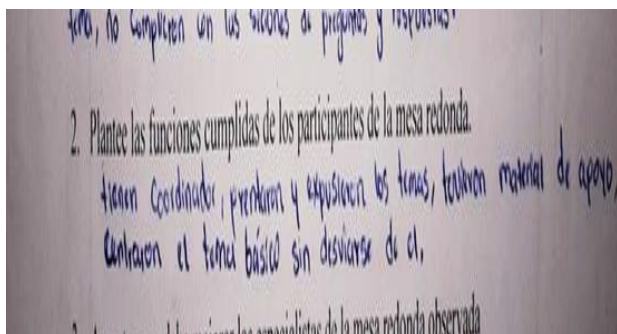 tema, no cumplieron con las sesiones de preguntas y respuestas.
2. Plantee las funciones cumplidas de los participantes de la mesa redonda.
tienen Coordinador, y expusieron los temas, tuvieron material de apoyo,
centraron el tema básico sin desviarse de el.
los especialistas de la mesa redonda observada